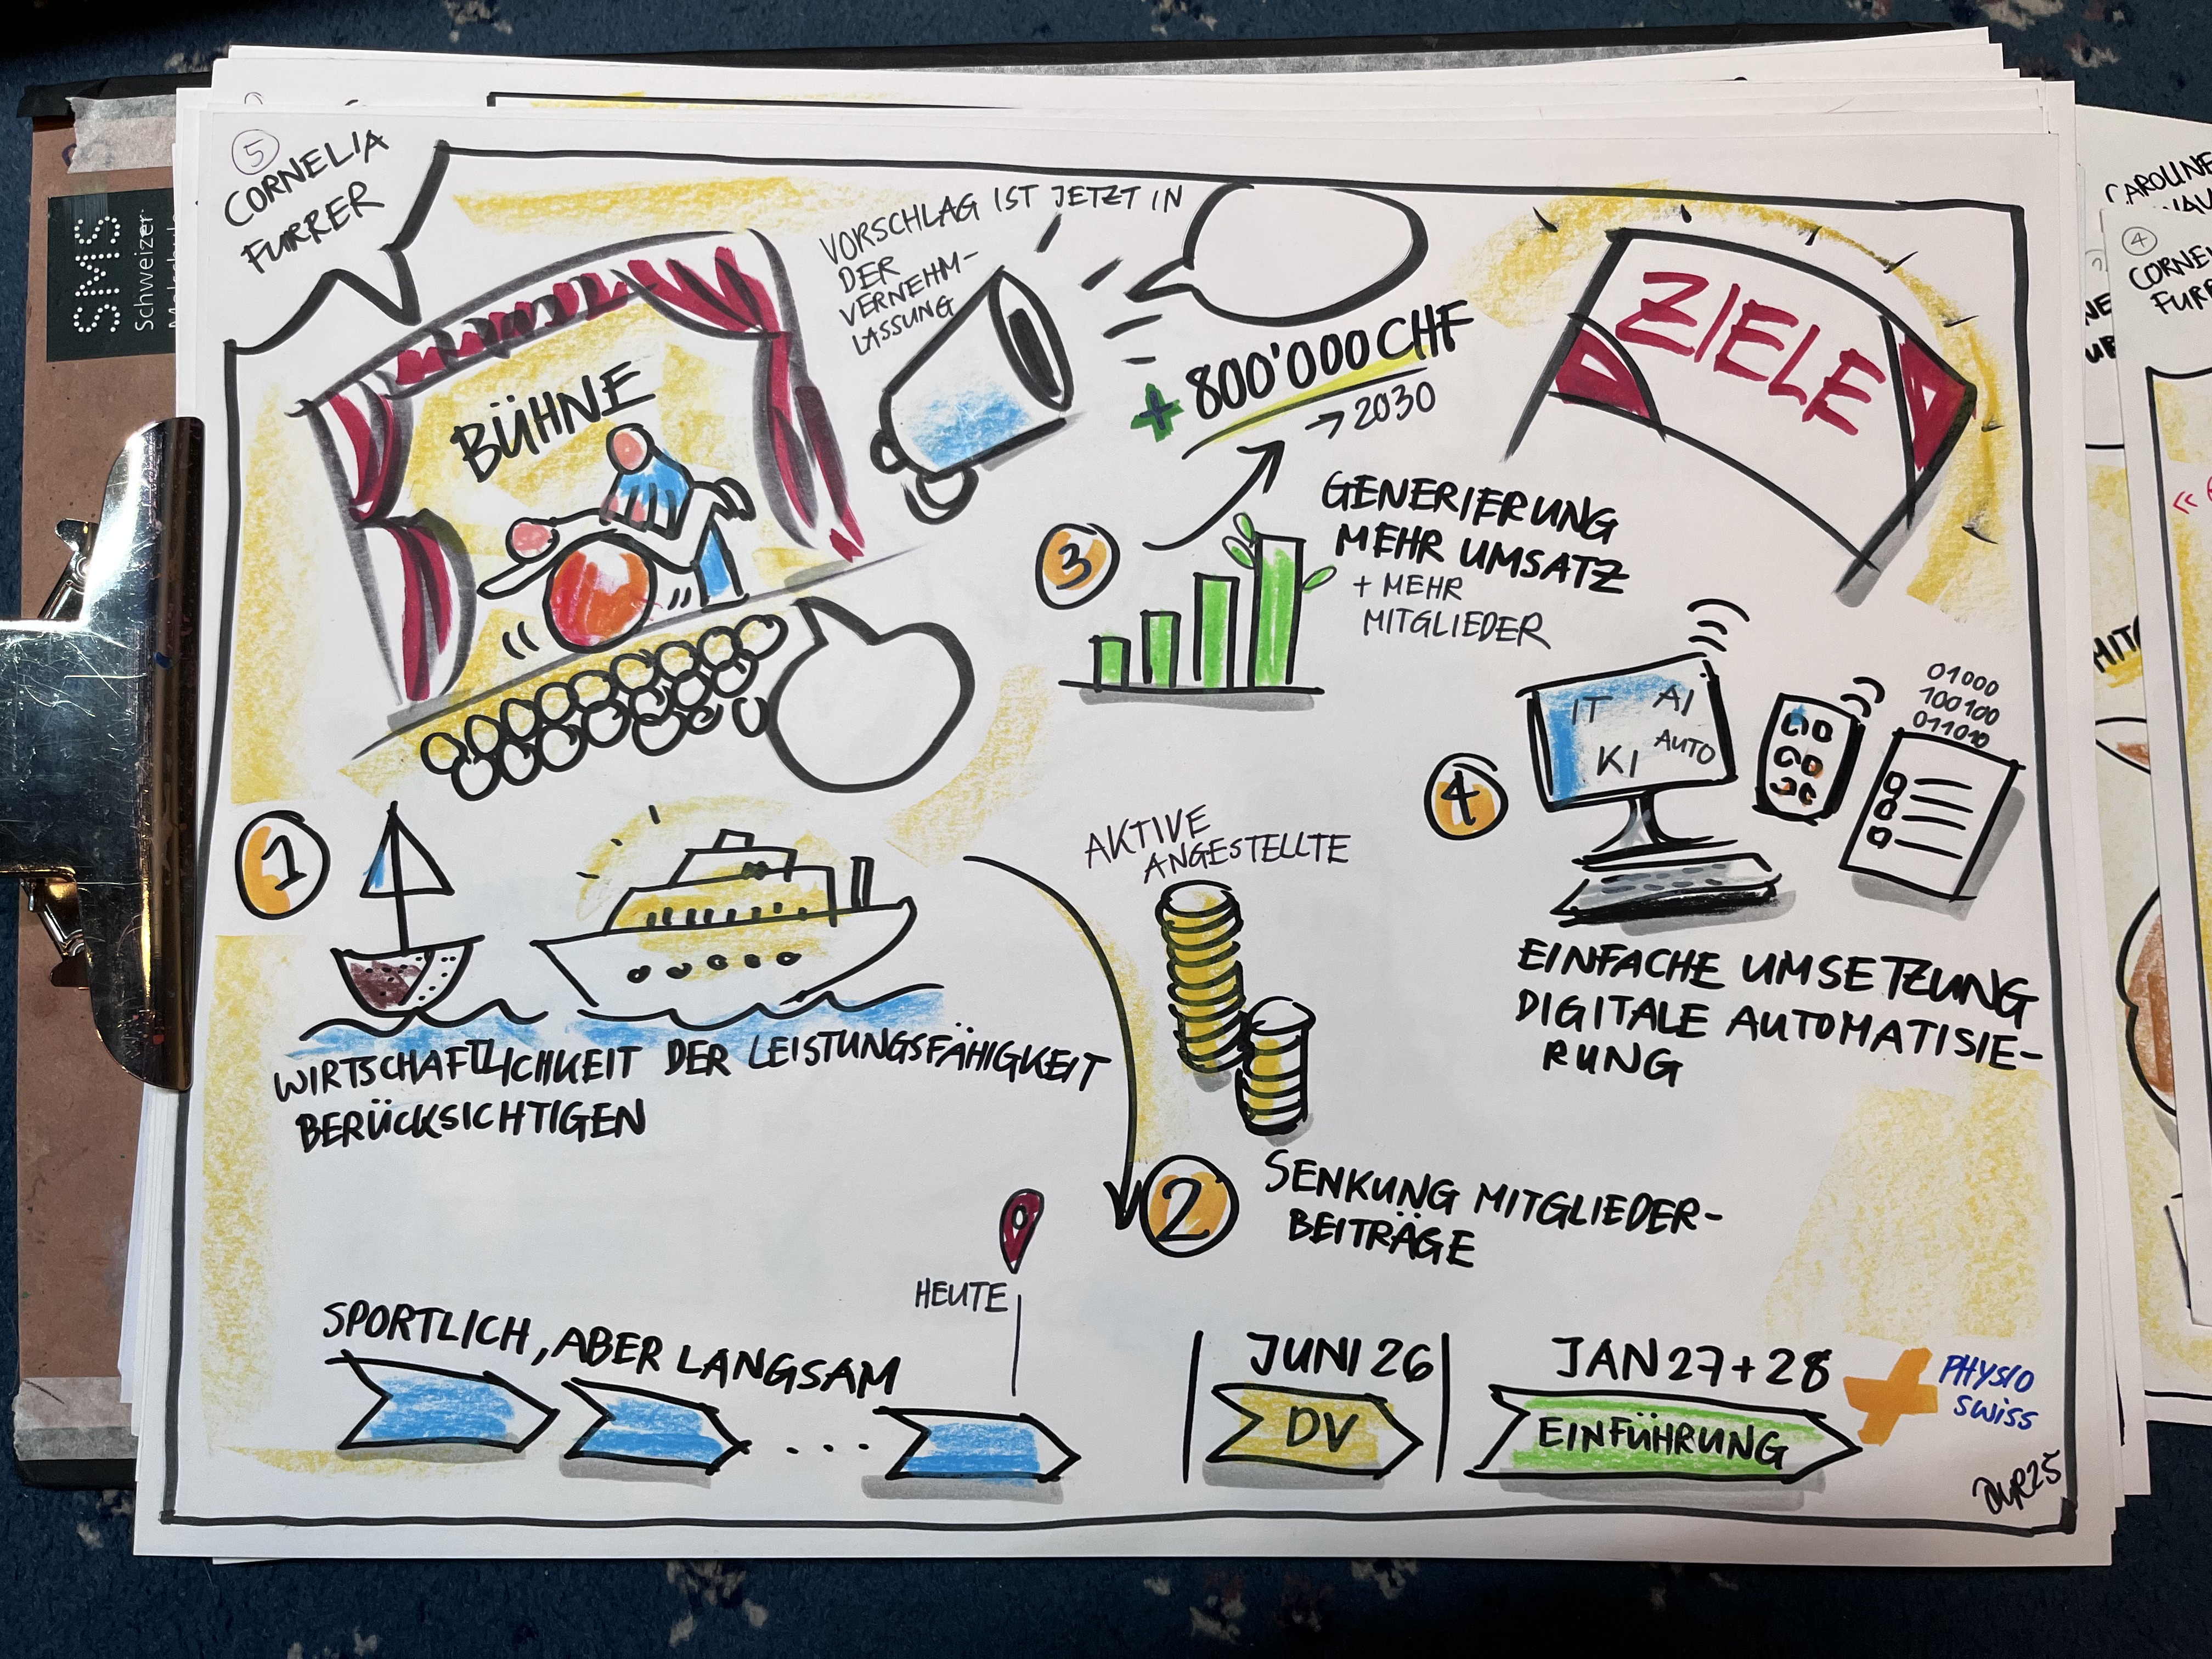 5
CORNELIA
FURRER
SMS
Schweizer
VORSCHLAG IST JETZT IN
DER
VERNEHM-
LASSUNG
BÜHNE
+ 800'000 CHF
→ 2030
ZIELE
3
GENERIERUNG
MEHR UMSATZ
+ MEHR
MITGLIEDER
1
WIRTSCHAFTLICHKEIT DER LEISTUNGSFÄHIGKEIT
BERÜCKSICHTIGEN
AKTIVE
ANGESTELLTE
4
IT AI
KI AUTO
01000
100100
011010
EINFACHE UMSETZUNG
DIGITALE AUTOMATISIE-
RUNG
2
SENKUNG MITGLIEDER-
BEITRÄGE
HEUTE
SPORTLICH, ABER LANGSAM
...
JUNI 26
DV
JAN 27 + 28
EINFÜHRUNG
PHYSIO
SWISS
CAROLINE
4
CORNE
FURR